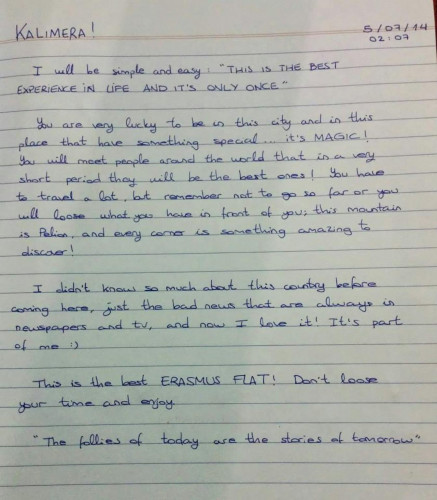 KALIMERA!
5/07/14
02:07
I will be simple and easy: "THIS IS THE BEST
EXPERIENCE IN LIFE AND IT'S ONLY ONCE"
You are very lucky to be in this city and in this
place that have something special... it's MAGIC!
You will meet people around the world that in a very
short period they will be the best ones! You have
to travel a lot, but remember not to go so far or you
will loose what you have in front of you; this mountain
is Pelion, and every corner is something amazing to
discover!
I didn't know so much about this country before
coming here, just the bad news that are always in
newspapers and tv, and now I love it! It's part
of me :)
This is the best ERASMUS FLAT! Don't loose
your time and enjoy
"The follies of today are the stories of tomorrow"